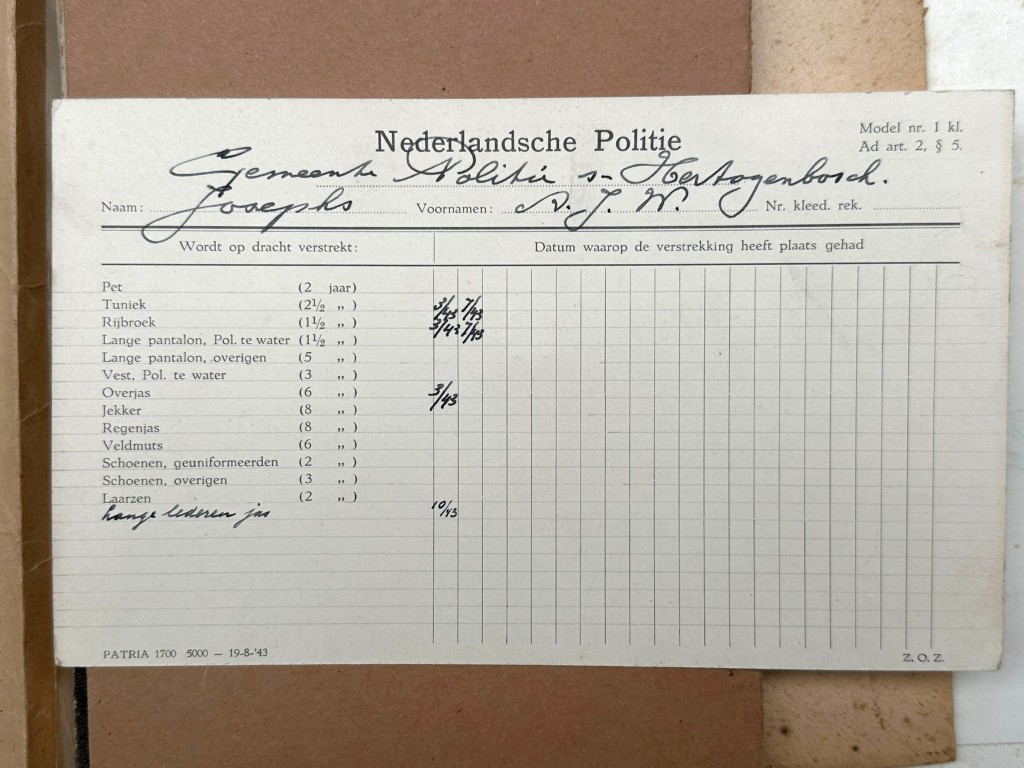 Nederlandsche Politie
Model nr. 1 kl.
Ad art. 2, § 5.
Gemeente Politie s-Hertogenbosch.
Naam: Josephs Voornamen: N. J. W. Nr. kleed. rek.
Wordt op dracht verstrekt: Datum waarop de verstrekking heeft plaats gehad
Pet (2 jaar)
Tuniek (2½ „ ) 3/43 7/43
Rijbroek (1½ „ ) 3/43 7/43
Lange pantalon, Pol. te water (1½ „ )
Lange pantalon, overigen (5 „ )
Vest, Pol. te water (3 „ )
Overjas (6 „ ) 3/43
Jekker (8 „ )
Regenjas (8 „ )
Veldmuts (6 „ )
Schoenen, geuniformeerden (2 „ )
Schoenen, overigen (3 „ )
Laarzen (2 „ )
Lange lederen jas 10/43
PATRIA 1700 5000 — 19-8-'43 Z. O. Z.